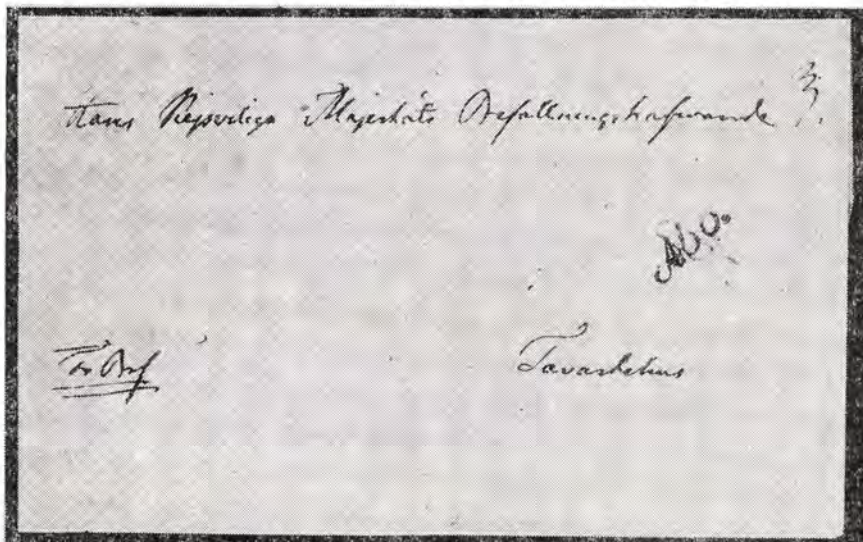 Hans Kejserliga Majestäts Befallningshafvande
Åbo.
Tavastehus